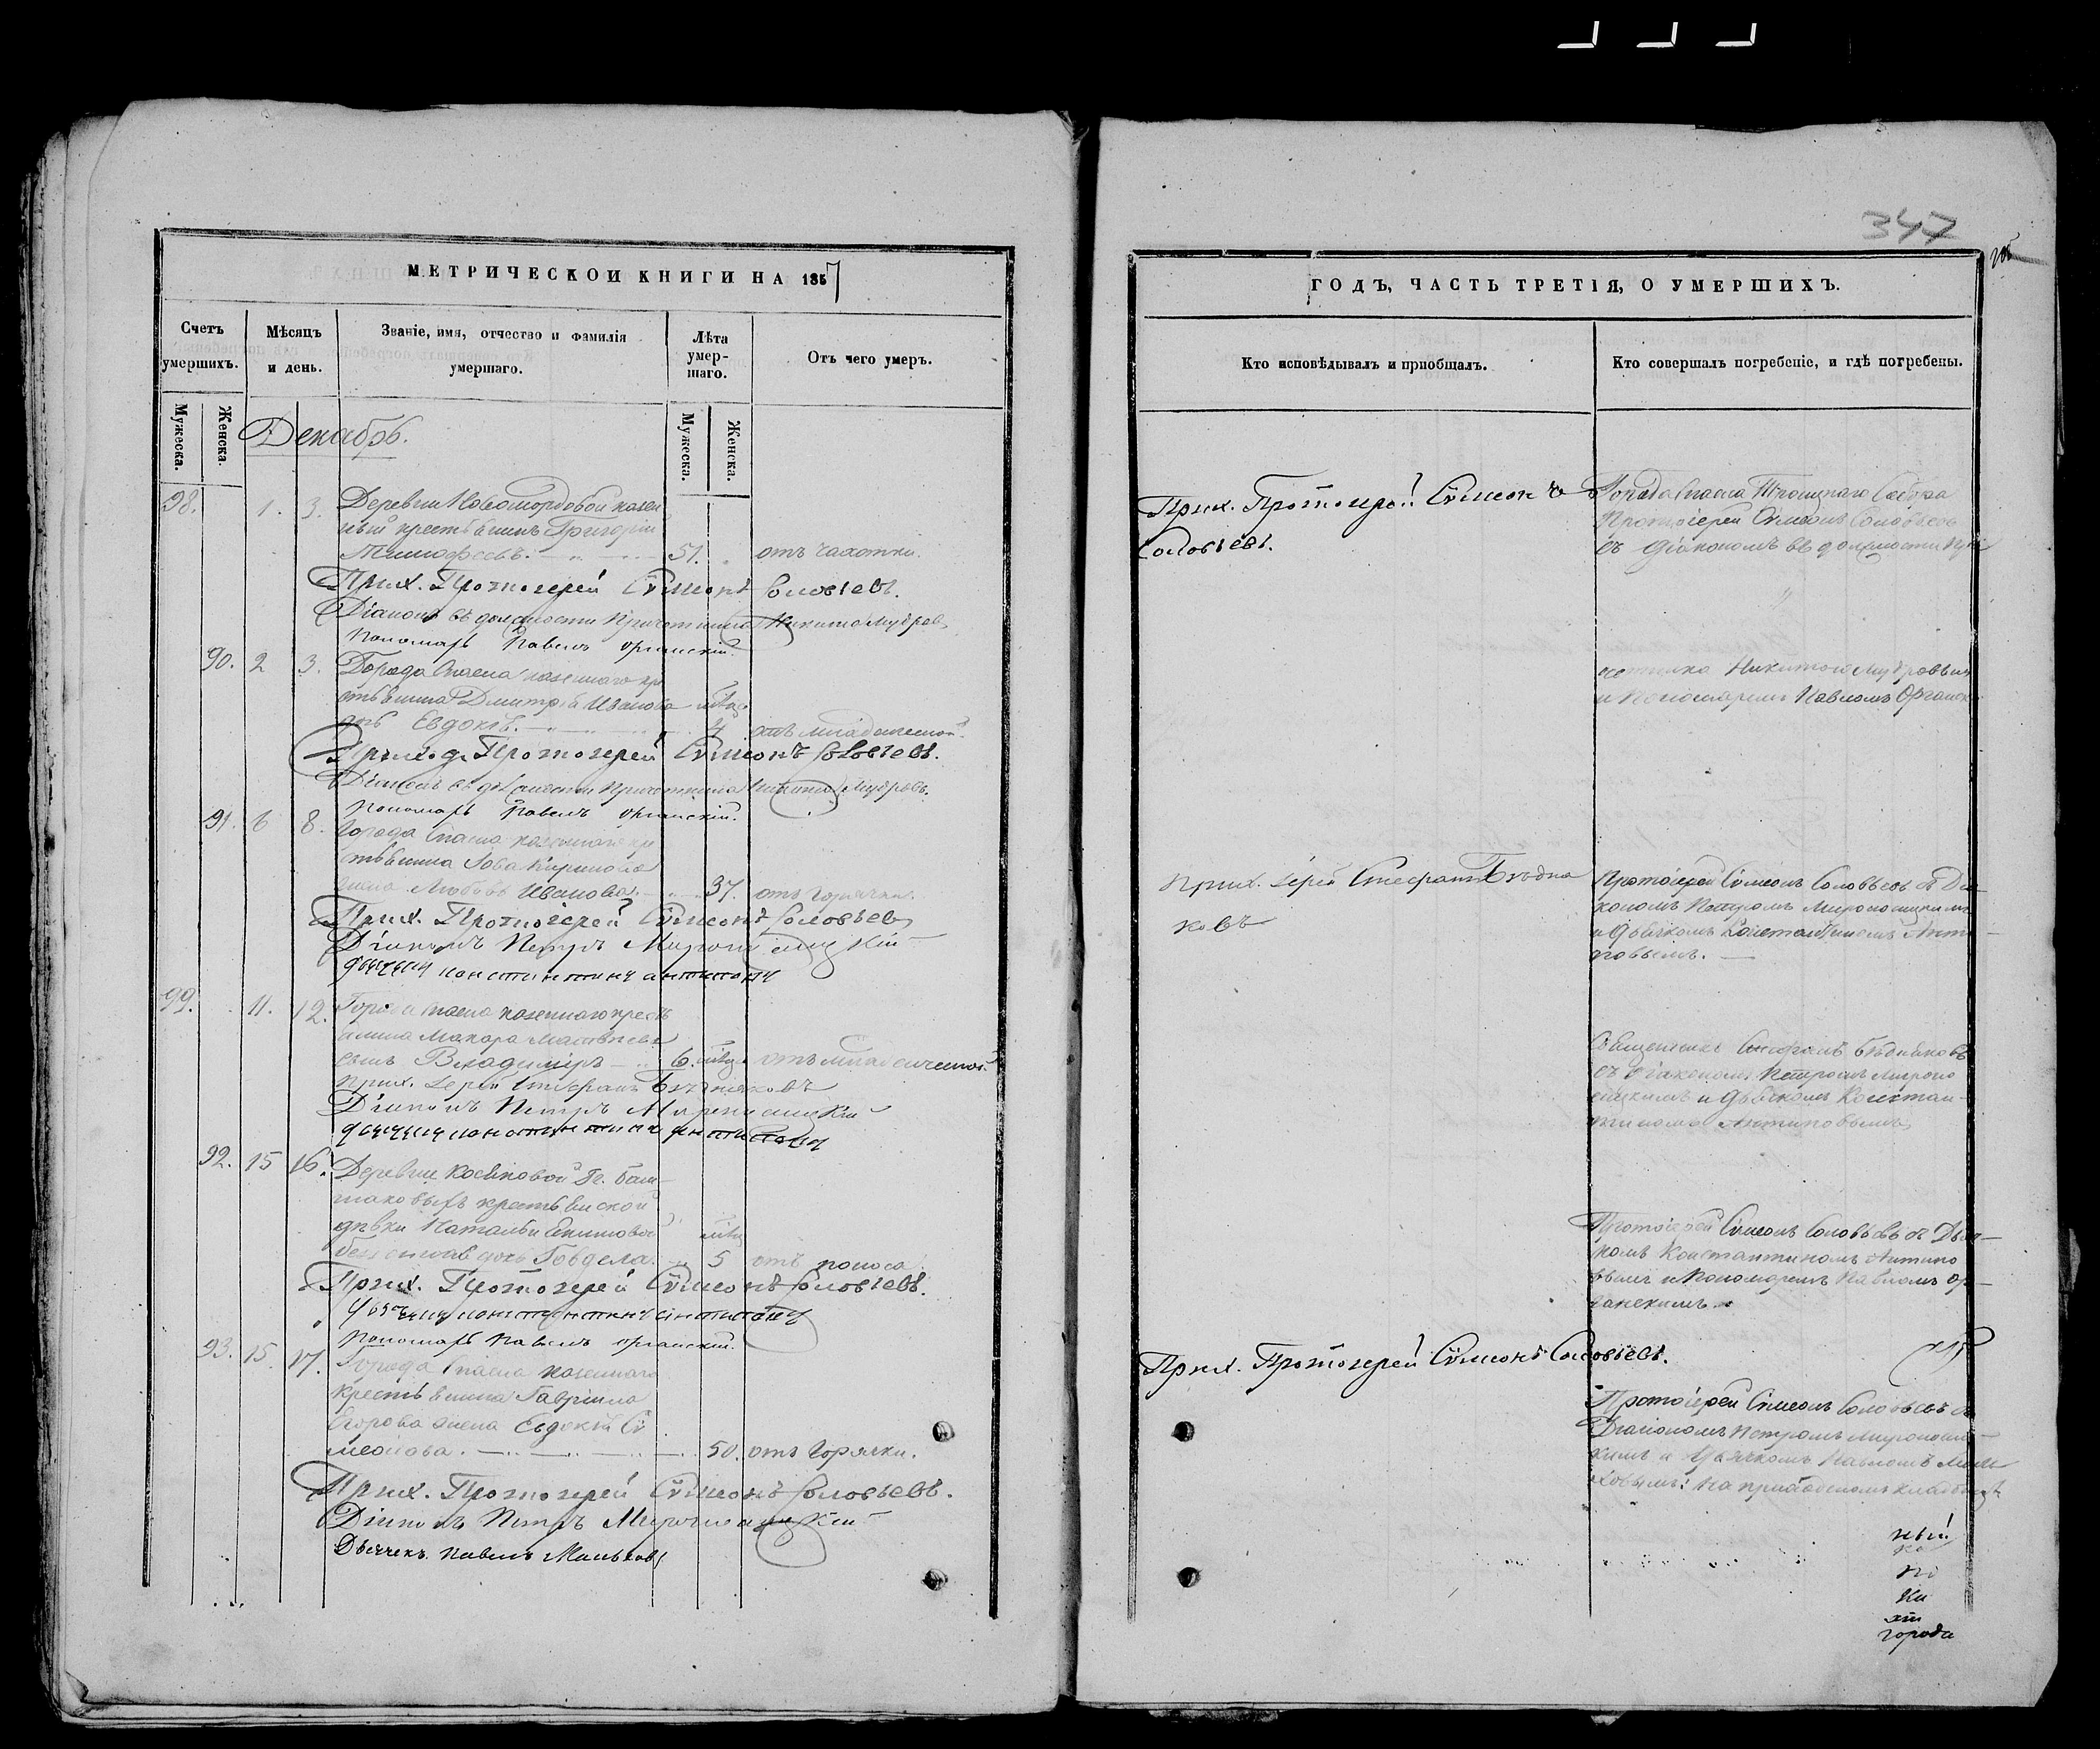 МЕТРИЧЕСКОЙ КНИГИ НА 1857
Счетъ умершихъ.
Мѣсяцъ и день.
Званіе, имя, отчество и фамилія умершаго.
Лѣта умер-
шаго.
Отъ чего умеръ.
Мужеска.
Женска.
Мужеска.
Женска.
Декабрь.
98. 1. 3. Деревни Новомордовой казен
ный крестьянинъ Григорій
Тимофеевъ. 51. отъ чахотки.
Прих. Протоіерей Сѵмеонъ Соловьевъ.
Діаконъ въ должности Причетника Никита Мудровъ
Пономарь Павелъ Органскій.
90. 2 3. Города Спаска казеннаго кре
стьянина Дмитрія Иванова мѣся
дочь Евдокія. 4 отъ младенческой.
Приход. Протоіерей Сѵмеонъ Соловьевъ.
Діаконъ въ должности Причетника Никита Мудровъ.
Пономарь Павелъ Органскій.
91. 6 8. Города Спаска казеннаго кре
стьянина
жена Любовь Иванова. 37. отъ горячки.
Прих. Протоіерей Сѵмеонъ Соловьевъ
Діаконъ Петръ Мироносицкій
дьячекъ Константинъ Антиповъ
99. 11. 12. Города Спаска казеннаго кресть
янина Макара Матвѣева
сынъ Владимиръ 6. мѣся отъ младенческой.
Прих. Іерей Стефанъ Бѣдняковъ
Діаконъ Петръ Мироносицкій
дьячекъ Константинъ Антиповъ
92. 15 16. Деревни
маковыхъ крестьянской
дѣвки Натальи Екимовой мѣся
дочь 5 отъ поноса.
Прих. Протоіерей Сѵмеонъ Соловьевъ.
дьячекъ Константинъ Антиповъ
Пономарь Павелъ Органскій.
93. 15. 17. Города Спаска казеннаго
крестьянина Гавріила
Егорова жена Евдокія Си
меонова. 50. отъ горячки.
Прих. Протоіерей Сѵмеонъ Соловьевъ.
Діаконъ Петръ Мироносицкій
Дьячекъ Павелъ Мальховъ
347
ГОДЪ, ЧАСТЬ ТРЕТІЯ, О УМЕРШИХЪ.
Кто исповѣдывалъ и пріобщалъ.
Кто совершалъ погребеніе, и гдѣ погребены.
Прих. Протоіерей Сѵмеонъ
Соловьевъ.
Города Спаска Троицкаго Собора
Протоіерей Сѵмеонъ Соловьевъ
съ Діакономъ въ должности При
четника Никитою Мудровымъ
и Пономаремъ Павломъ Органск
Прих. Іерей Стефанъ Бѣдня
ковъ
Протоіерей Сѵмеонъ Соловьевъ съ Діа-
кономъ Петромъ Мироносицкимъ
и дьячкомъ Константиномъ Анти-
повымъ.
Священникъ Стефанъ Бѣдняковъ
съ Діакономъ Петромъ Мироно
сицкимъ и дьячкомъ Констан-
тиномъ Антиповымъ
Протоіерей Сѵмеонъ Соловьевъ съ Дьяч-
комъ Константиномъ Антипо
вымъ и Пономаремъ Павломъ Ор-
ганскимъ.
Прих. Протоіерей Сѵмеонъ Соловьевъ.
Протоіерей Сѵмеонъ Соловьевъ съ
Діакономъ Петромъ Мироносиц-
кимъ и Дьячкомъ Павломъ Маль
ховымъ: на приходскомъ кладбищѣ
ный
но
ки
города